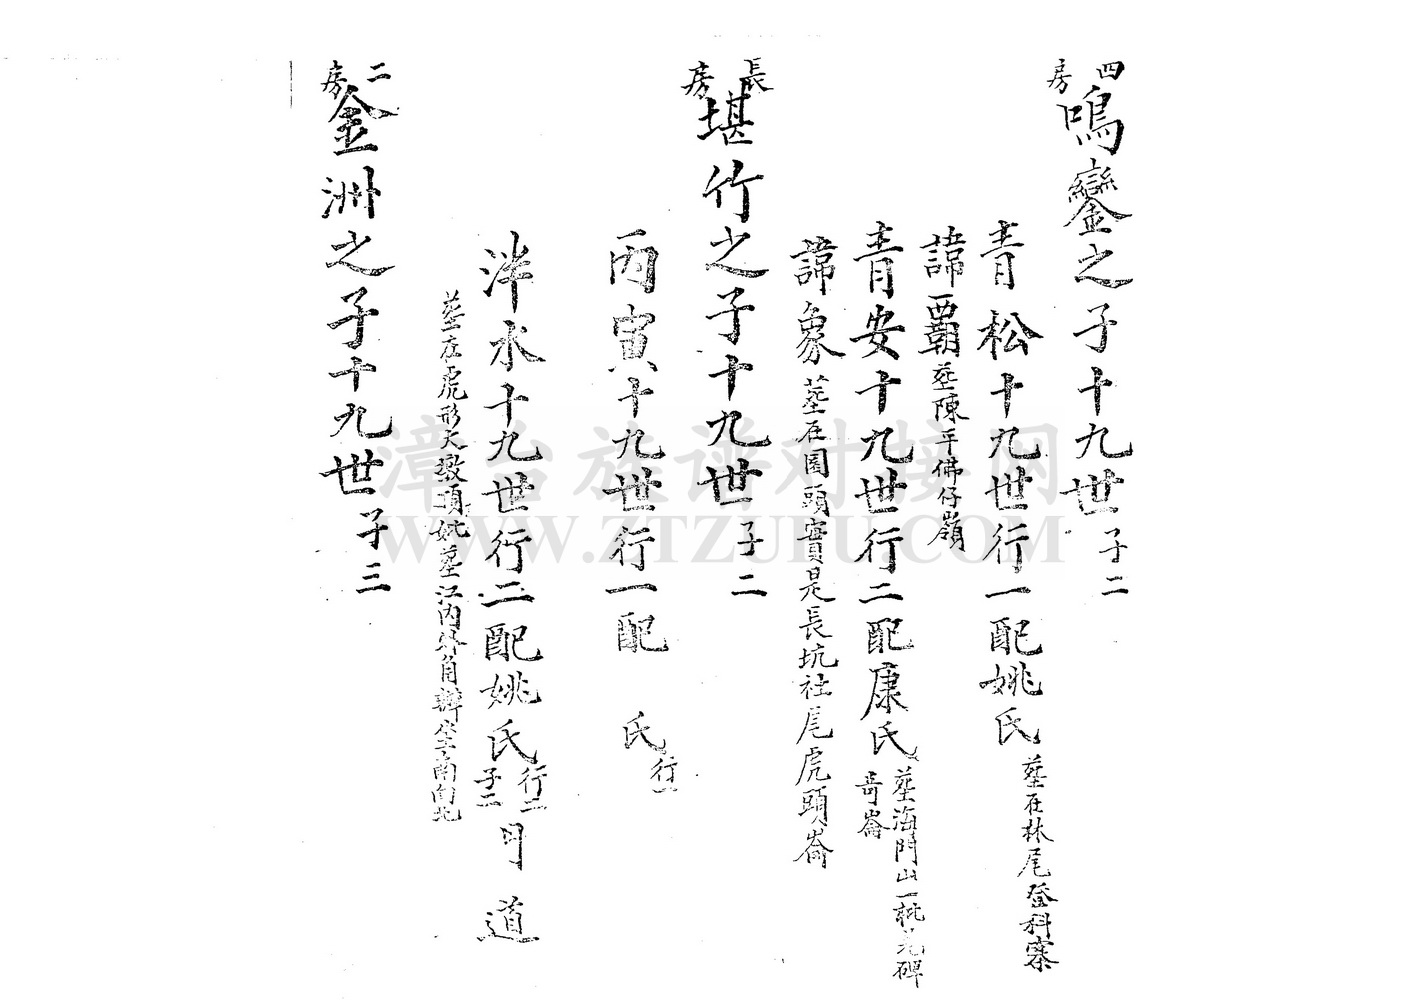 四房
鳴鑾之子十九世 子二
青松十九世行一配姚氏 墓在林尾登科寨
諱霸 墓陳平佛仔嶺
青安十九世行二配康氏 墓海門山一
奇崙
諱象 墓在園頭實是長坑社尾虎頭崙
長房
堪竹之子十九世 子二
丙寅十九世行一配 氏 行一
泮水十九世行二配姚氏 行二 子二 道
墓在虎形大墩頂妣墓江內外角 坐南向北
二房
金洲之子十九世 子三
漳台族谱对接网
WWW.ZTZUPU.COM